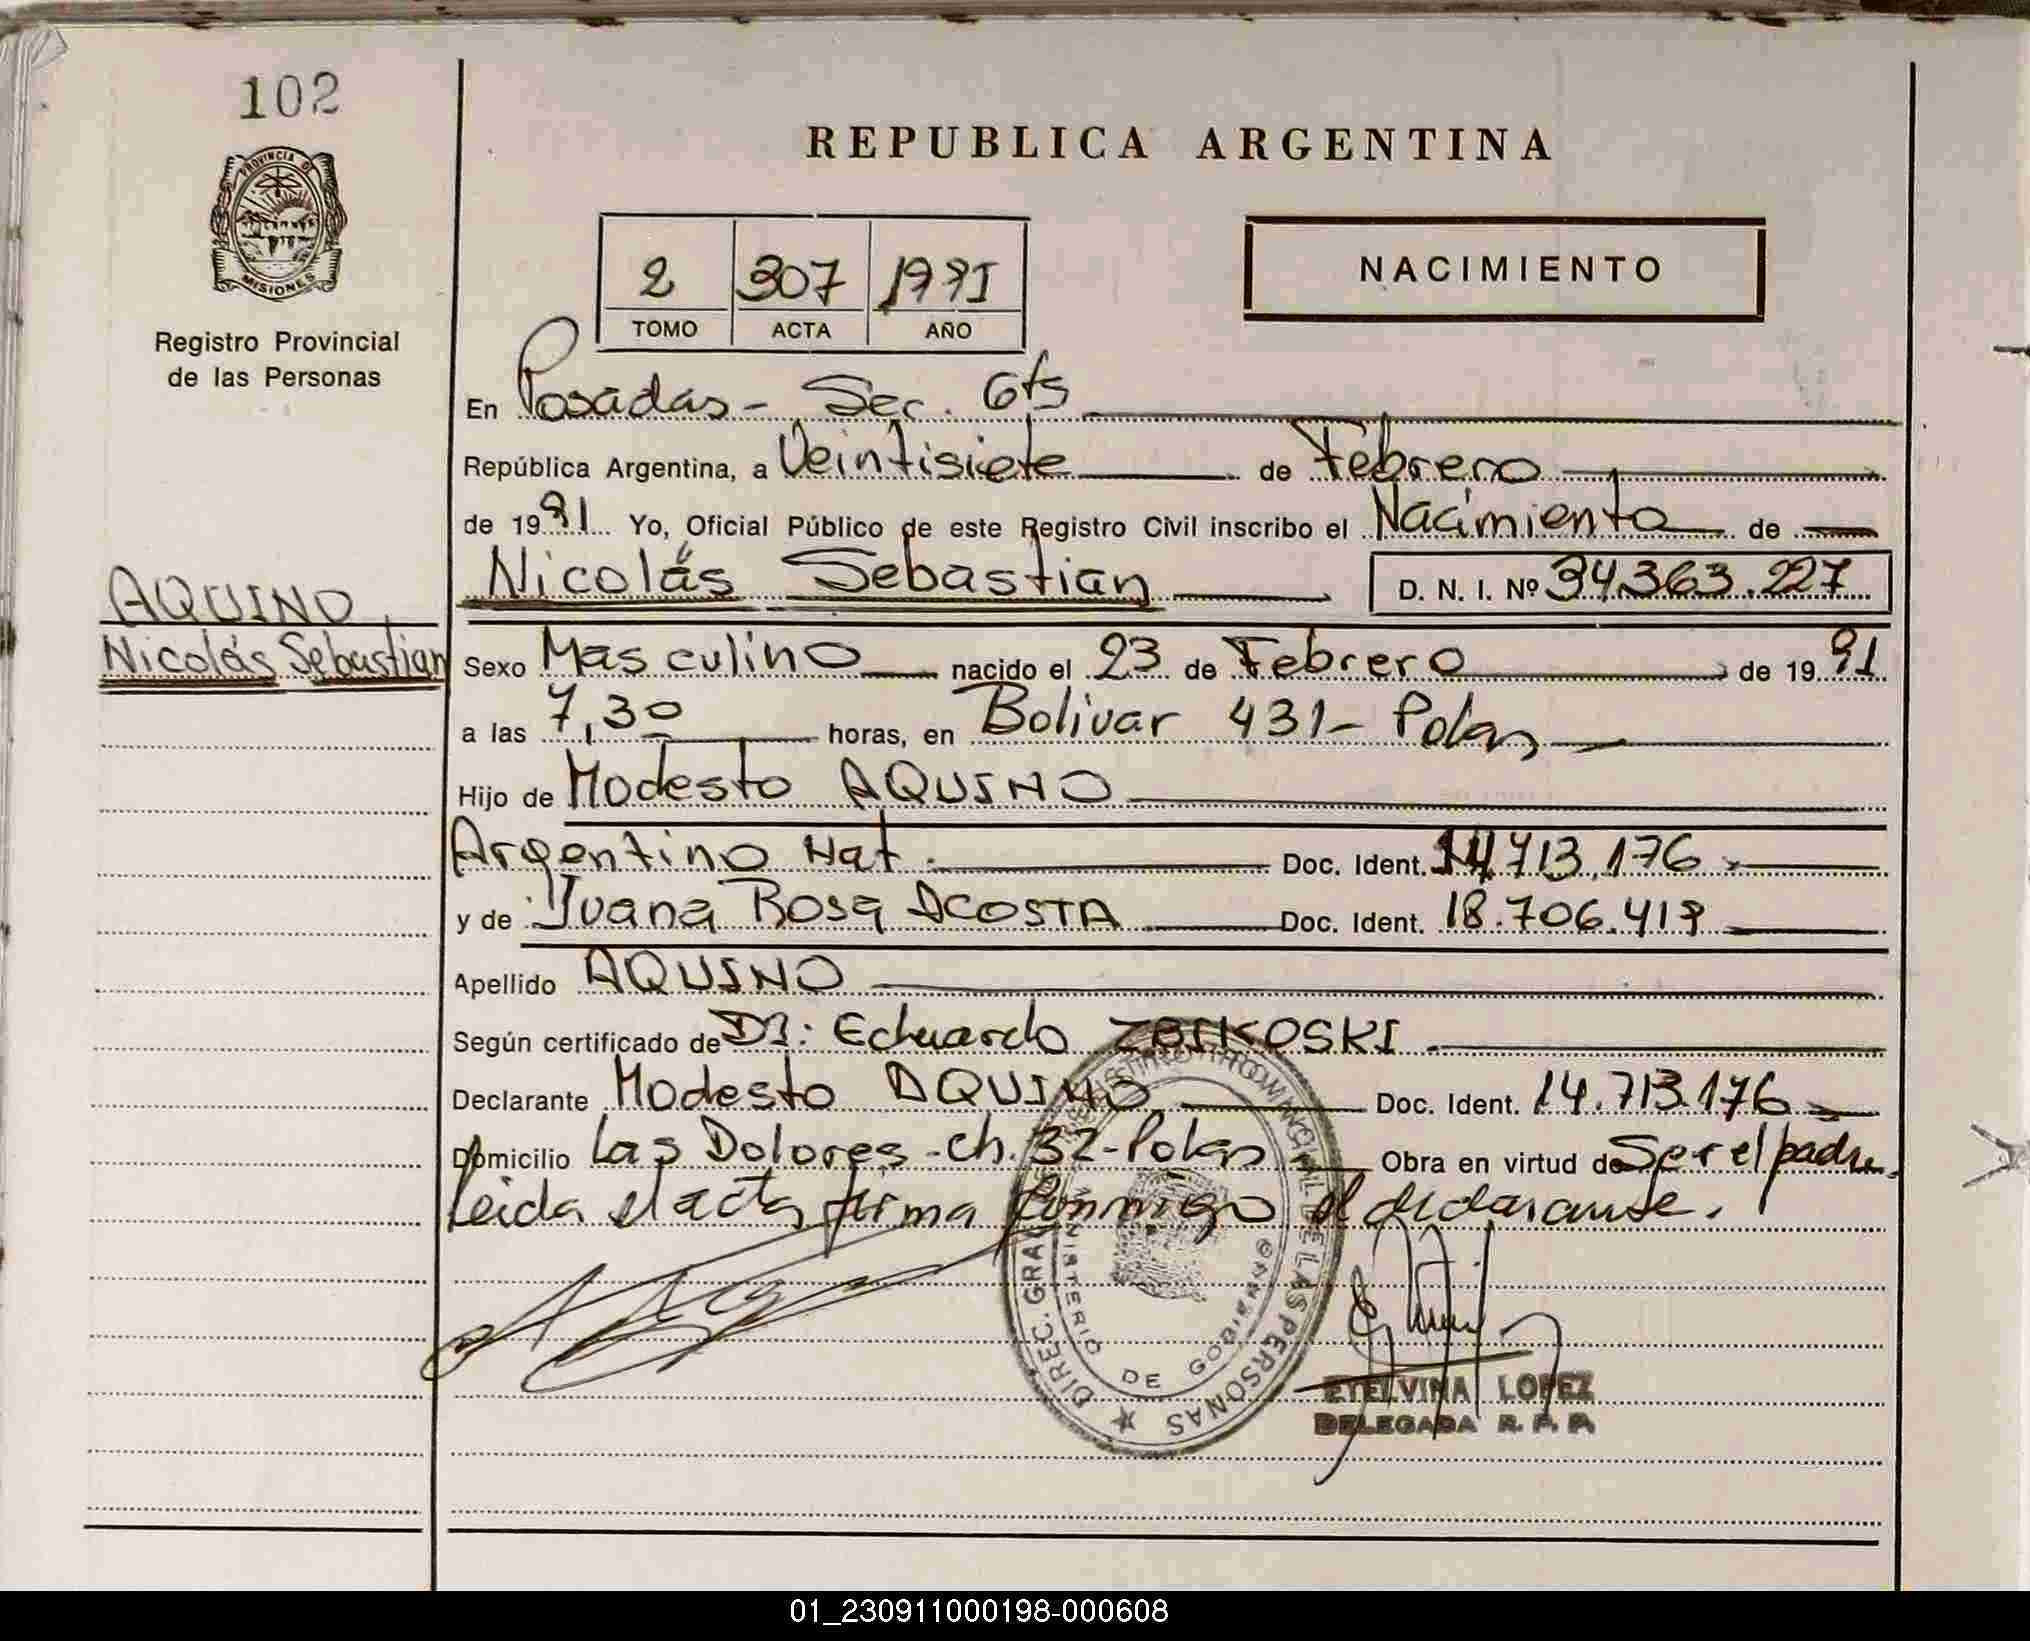 102
PROVINCIA DE
MISIONES
Registro Provincial
de las Personas
AQUINO,
Nicolás Sebastian
REPUBLICA ARGENTINA
2 307 1991
TOMO ACTA AÑO
NACIMIENTO
En Posadas - Sec. 6ta
República Argentina, a Veintisiete de Febrero
de 1991 Yo, Oficial Público de este Registro Civil inscribo el Nacimiento de
Nicolás Sebastian D. N. I. Nº 34.363.227
Sexo Masculino nacido el 23 de Febrero de 1991
a las 7,30 horas, en Bolivar 431 - Pdas
Hijo de Modesto AQUINO
Argentino Nat. Doc. Ident. 14.713.176
y de Juana Rosa ACOSTA Doc. Ident. 18.706.419
Apellido AQUINO
Según certificado de Dr: Eduardo ZBIKOSKI
Declarante Modesto AQUINO Doc. Ident. 14.713.176
Domicilio Las Dolores - Ch. 32 - Pdas Obra en virtud de Ser el padre.
Leida el acta, firma conmigo el declarante.
DIREC. GRAL. DE LAS PERSONAS
MINISTERIO DE GOBIERNO
ETELVINA LOPEZ
DELEGADA R. P. P.
01_230911000198-000608